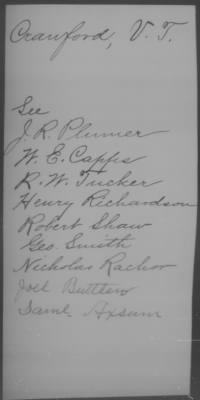 Crawford, V. T.
See
J. R. Plumer
W. E. Capps
R. W. Tucker
Henry Richardson
Robert Shaw
Geo. Smith
Nicholas Rachor
Joel Buttlew
Saml. Axsum